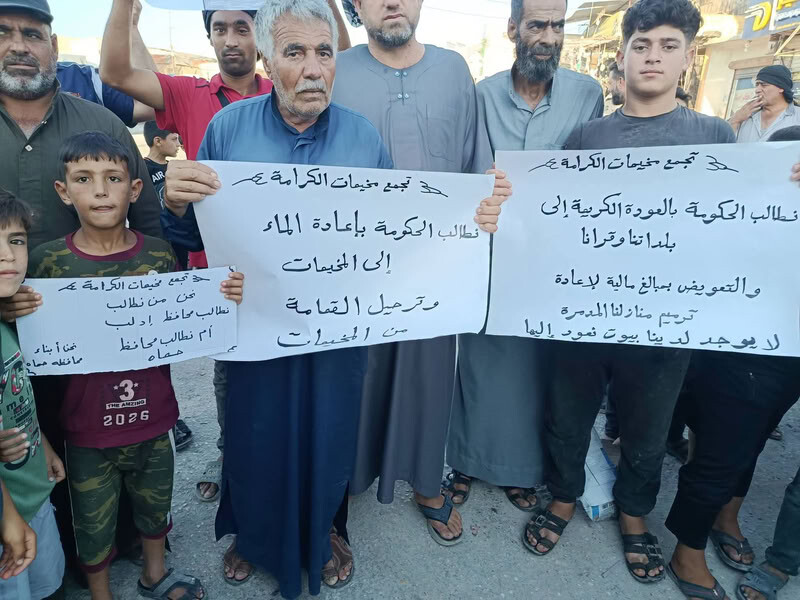 تجمع مخيمات الكرامة
نحن من نطالب
نطالب محافظ إدلب
أم نطالب محافظ
حماه
نحن أبناء
محافظه حماه
تجمع مخيمات الكرامة
نطالب الحكومة بإعادة الماء
إلى المخيمات
وترحيل القمامة
من المخيمات
تجمع مخيمات الكرامة
نطالب الحكومة بالعودة الكريمة إلى
بلداتنا وقرانا
والتعويض بمبالغ مالية لإعادة
ترميم منازلنا المدمرة
لا يوجد لدينا بيوت نعود إليها
3
THE AMAZING
2026
AIR